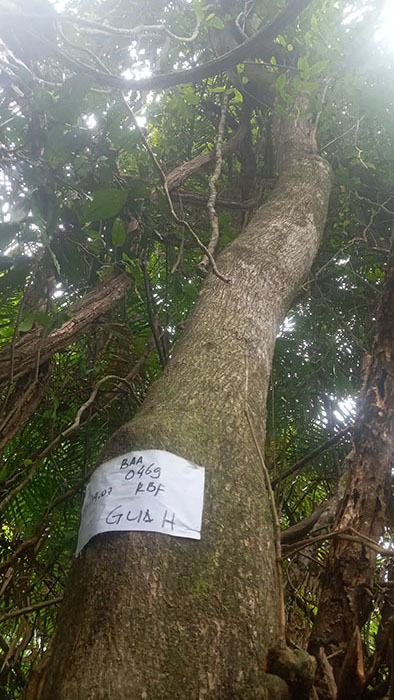 BAA
0469
19.07 RBF
GUAH